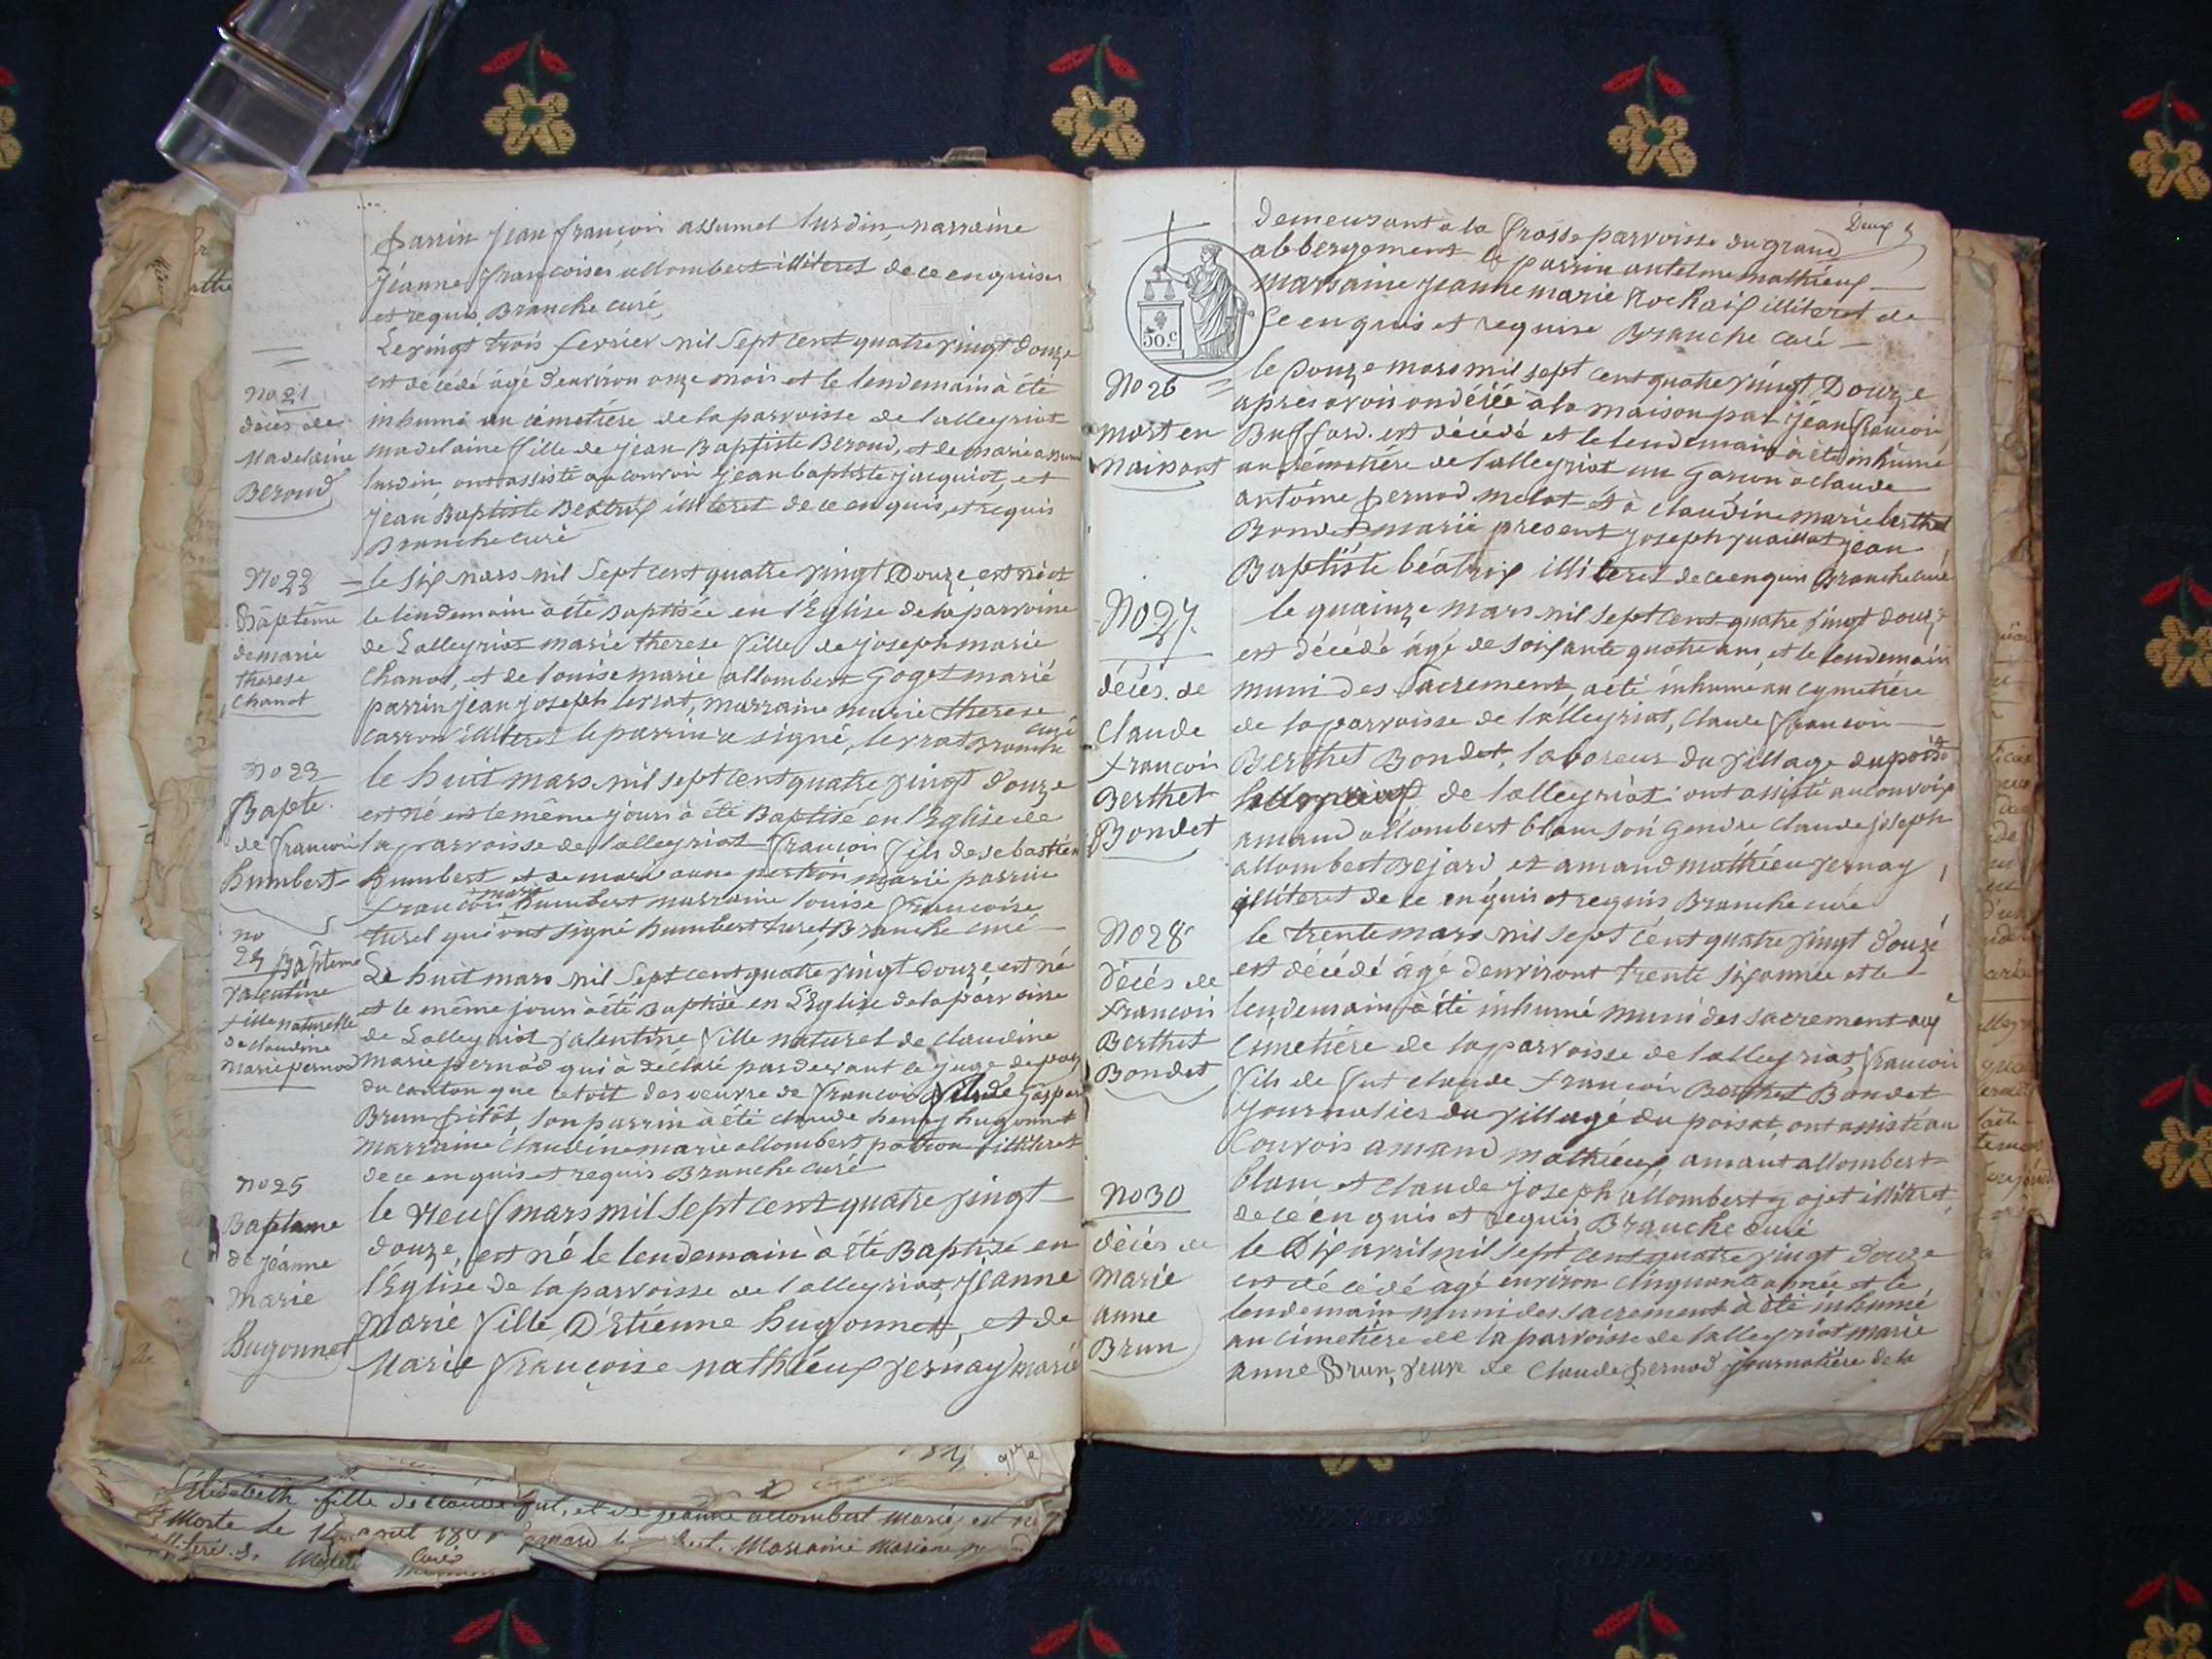 parrin jean françois assumel lurdin, marraine
Jeanne françoises allombert illiteret de ce enquises
et requis Branche curé
Le vingt trois fevrier mil sept cent quatre vingt douze
No 21
décès de
Madelaine
Beroud
est décédé âgé d'environ onze mois et le lendemain à été
inhumé au cémetiére de la parroisse de lalleyriat
madelaine fille de jean Baptiste Beroud, et de marie
lurdin, ont assisté au convoir jean baptiste jacquiot, et
jean Baptiste Beatrix illiteret de ce enquis, et requis
Branche curé
No 22
Bâptême
de marie
therese
Chanot
le six mars mil sept cent quatre vingt Douze est né et
le lendemain à été Baptisée en l'Eglise de la parroisse
de Lalleyriat marie therese fille de joseph marie
Chanot, et de louise marie allombert Goget marié
parrin jean joseph levrat, marraine marie therese
carron illiteret le parrin a signé, levrat Branche curé
No 23
Bapte.
de françois
humbert
le huit mars mil sept cent quatre vingt douze
est né et le même jour à été Baptisé en l'Eglise de
la parroisse de lalleyriat françois fils de sebastien
humbert et de marie anne marié parrin
françois marie humbert marraine louise françoise
turel qui ont signé humbert turel, Branche curé
no
24 Bâptême
valentine
fille naturelle
de claudine
marie pernod
Le huit mars mil sept cent quatre vingt douze est né
et le même jour à été Baptisé en L'Eglise de la parroisse
de Lalleyriat valentine fille naturel de claudine
marie pernod qui à déclaré pardevant le juge de paix
du canton que cetoit des oeuvre de françois fils de Gaspar
Brun son parrin à été claude henry hugonnet
marraine claudine marie allombert patron illiteret
de ce enquis et requis Branche curé
No 25
Baptame
de jeanne
marie
hugonnet
le neuf mars mil sept cent quatre vingt
douze, est né le lendemain à été Baptisé en
l'Eglise de la parroisse de lalleyriat, jeanne
marie fille D'Etienne hugonnet, et de
Marie françoise mathieux vernay marié
Deux
demeurant a la frasse parroisse du grand
abbergement le parrin antelme mathieux
marraine jeanne marie Rochaix illiteret de
ce enquis et requise Branche curé
No 26
mort en
naissant
le Douze mars mil sept cent quatre vingt Douze
après avoir ondéié à la maison par jean françois
Buffard. est décédé et le lendemain à été inhumé
au cémetiére de lalleyriat un garcon à claude
antoine pernod molat et à claudine marie berthet
Bondet marié present joseph jean
Baptiste béatrix illiteret de ce enquis Branche curé
No 27.
décés. de
claude
françois
Berthet
Bondet
le quainze mars mil sept cent quatre vingt douze
est décédé âgé de soixante quatre ans, et le lendemain
muni des sacrement, a été inhumé au cymetiére
de la parroisse de lalleyriat, claude françois
Berthet Bondet, laboreur du village du
de lalleyriat. ont assisté au convoix
amand allombert blanc son gendre claude joseph
allombert Bejard, et amand mathieu vernay,
illiteret de ce enquis et requis Branche curé
No 28
décés de
françois
Berthet
Bondet
le trente mars mil sept cent quatre vingt douze
est décédé âgé d'environt trente six année et le
lendemain à été inhumé muni des sacrement aux
Cimetiére de la parroisse de lalleyriat, françois
fils de fut claude françois Berthet Bondet
journalier du village du poisat, ont assisté au
Couvois amand mathieux, amant allombert
blanc et claude joseph allombert gojet illiteret
de ce en quis et requis Branche curé
No 30
décés de
marie
anne
Brun
le Dix avril mil sept cent quatre vingt douze
est décédé agé environ cinquante année et le
lendemain muni des sacrement à été inhumé
au cimetiére de la parroisse de lalleyriat marie
anne Brun, veuve de Claude pernod journaliére de la
Elisabeth fille de claude et de jeanne allombert marié est né
Morte le avril Marraine
curé